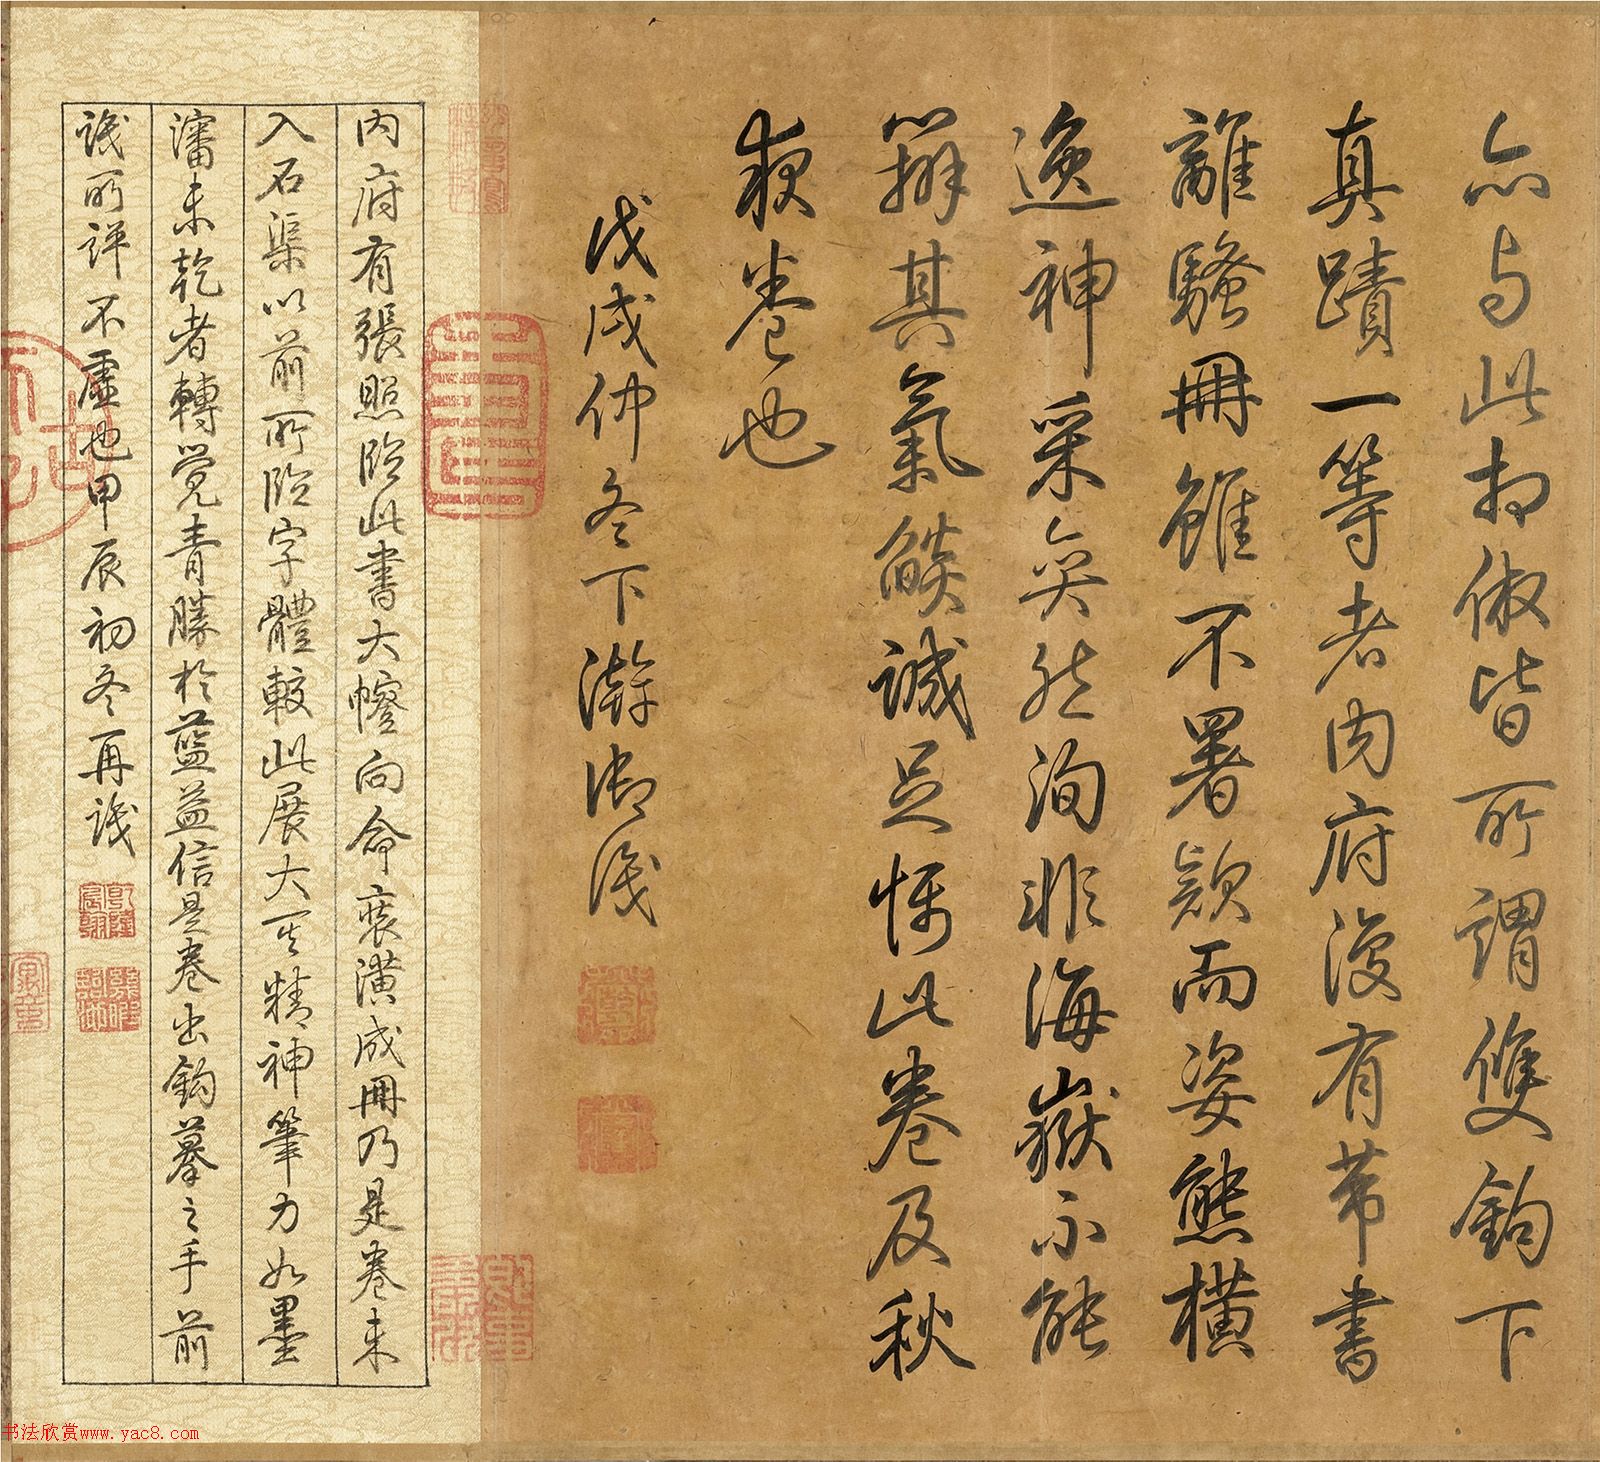 亦与此相倣皆所謂雙鉤下
真蹟一等者内府復有芾書
離騷冊雖不署款而姿態橫
逸神采奕然洵非海嶽不能
辦其氣燄誠足怖此卷及秋
秋卷也
戊戌仲冬下澣御識
内府有張照臨此書大幛向命裝潢成冊乃是卷未
入石渠以前所臨字體較此展大而精神筆力如墨
瀋未乾者轉覺青勝於藍益信是卷出鉤摹之手前
識所評不虛也甲辰初冬再識
书法欣赏www.yac8.com